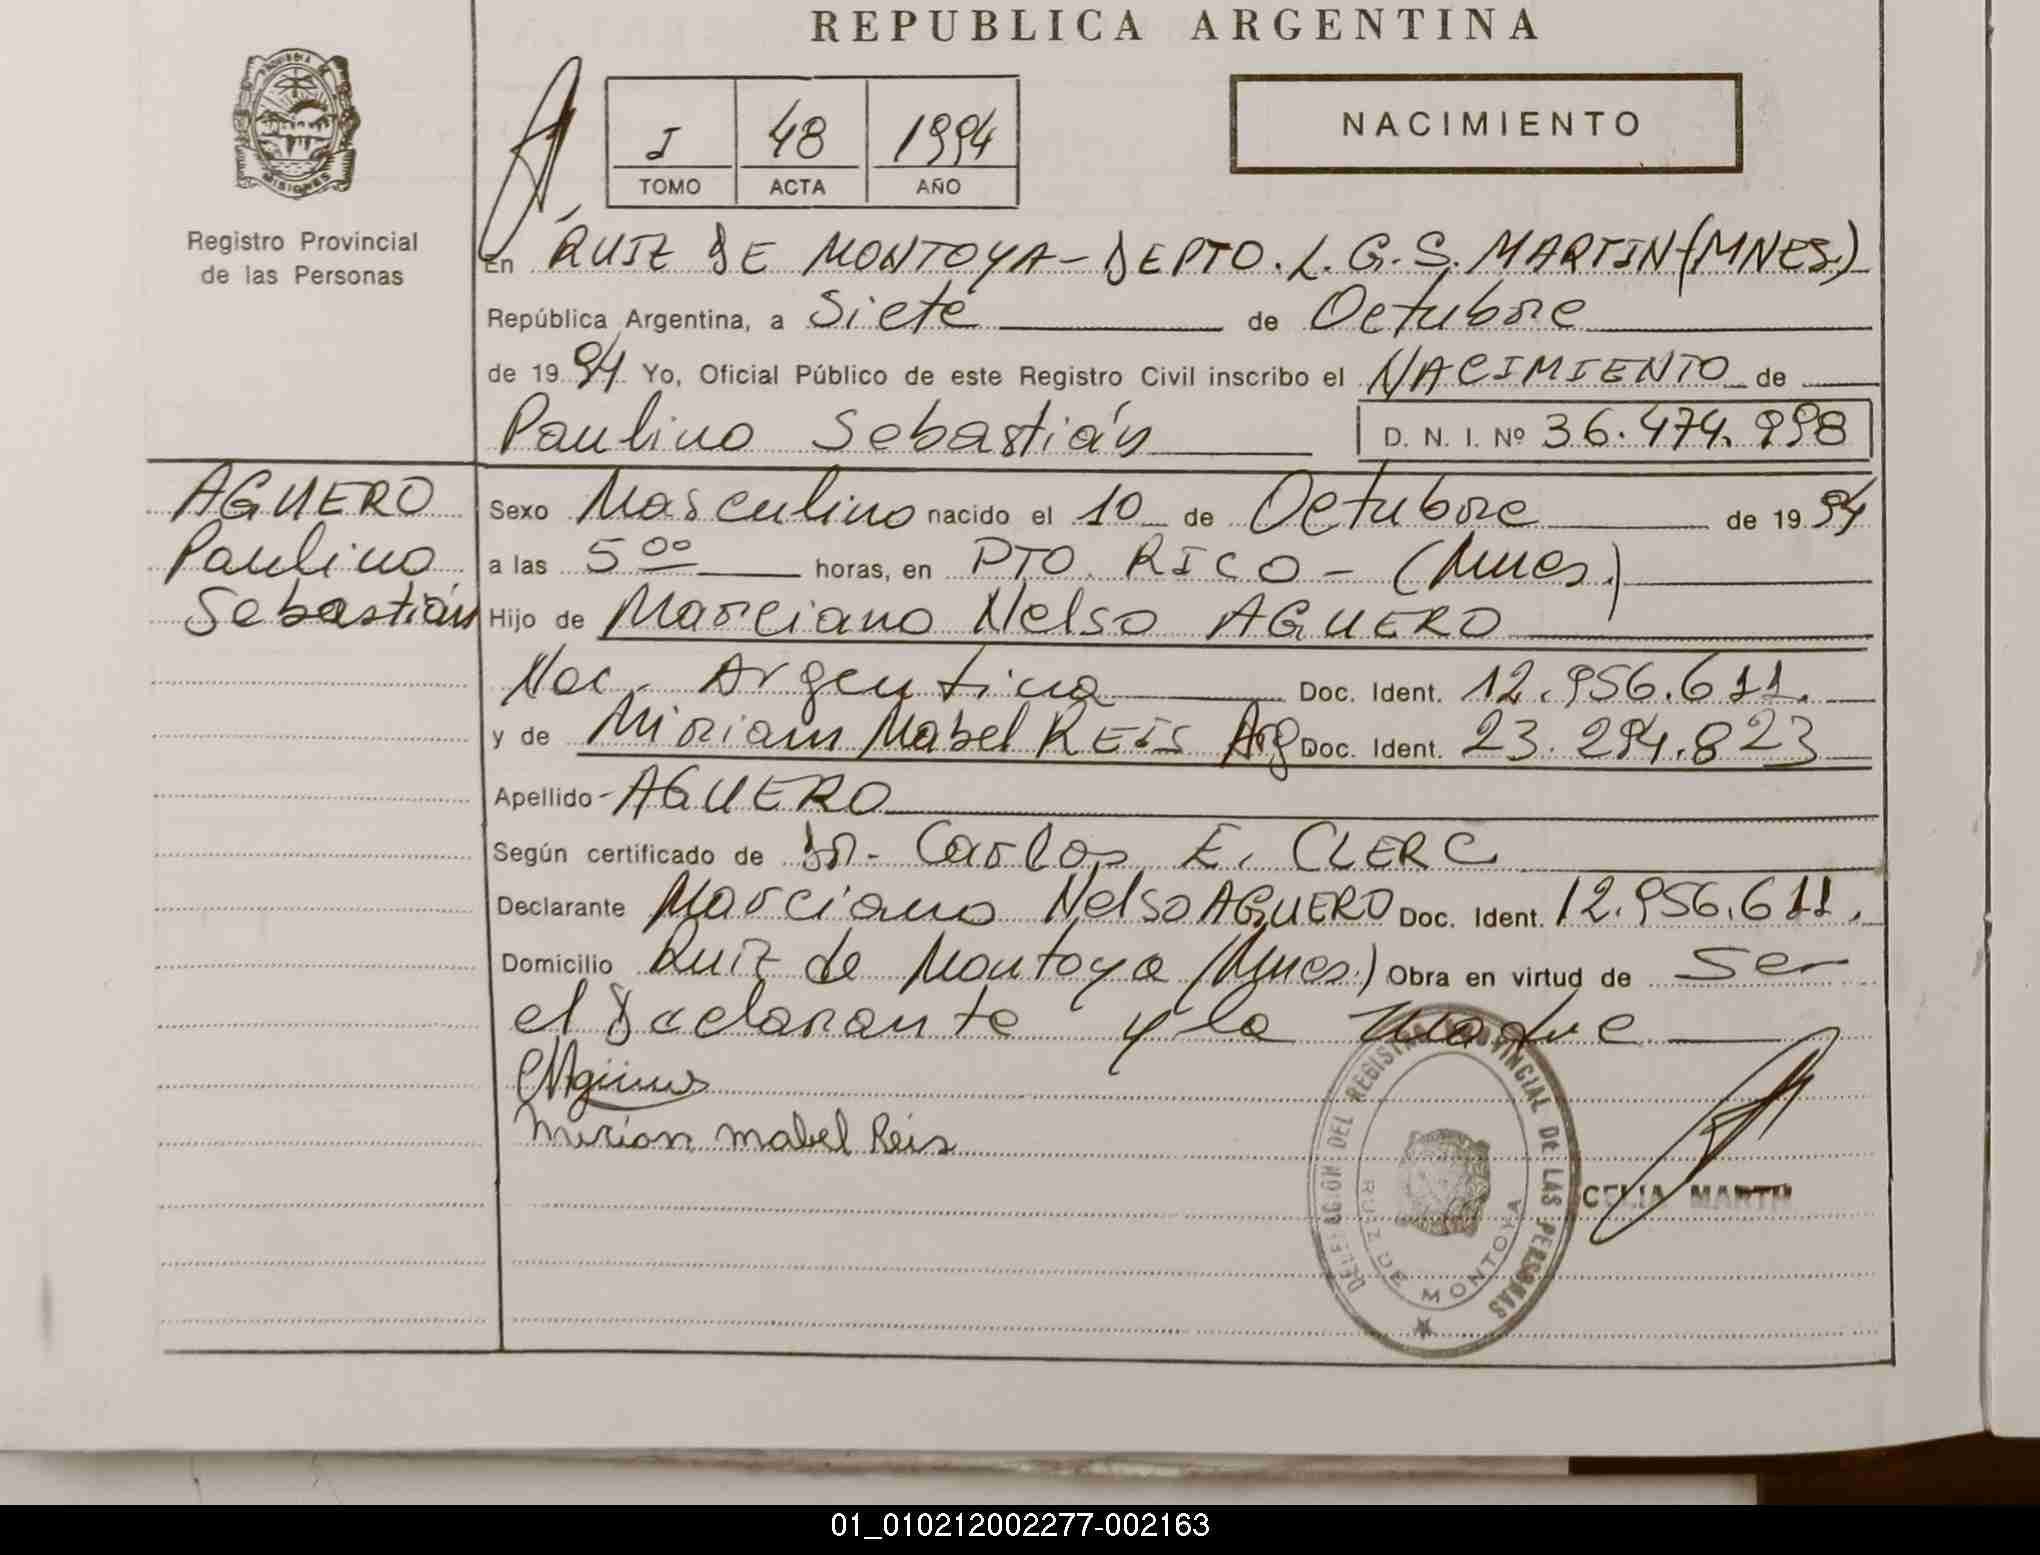 REPUBLICA ARGENTINA
PROVINCIA DE
MISIONES
Registro Provincial
de las Personas
I 48 1994
TOMO ACTA AÑO
NACIMIENTO
En RUIZ DE MONTOYA - DEPTO. L. G. S. MARTIN (MNES.)
República Argentina, a Siete de Octubre
de 1994 Yo, Oficial Público de este Registro Civil inscribo el NACIMIENTO de
Paulino Sebastián D. N. I. Nº 36.474.998
AGUERO
Paulino
Sebastián
Sexo Masculino nacido el 10 de Octubre de 1994
a las 5 00 horas, en PTO. RICO - (Mnes.)
Hijo de Marciano Nelso AGUERO
Nac. Argentina Doc. Ident. 12.956.611.
y de Miriam Mabel REIS Arg Doc. Ident. 23.294.823
Apellido - AGUERO
Según certificado de Dr. Carlos E. CLERC
Declarante Marciano Nelso AGUERO Doc. Ident. 12.956.611.
Domicilio Ruiz de Montoya (Mnes.) Obra en virtud de Ser
el Declarante y la madre
Mirian mabel Reis
DELEGACION DEL REGISTRO PROVINCIAL DE LAS PERSONAS
RUIZ DE MONTOYA
CELIA MARTH
01_010212002277-002163